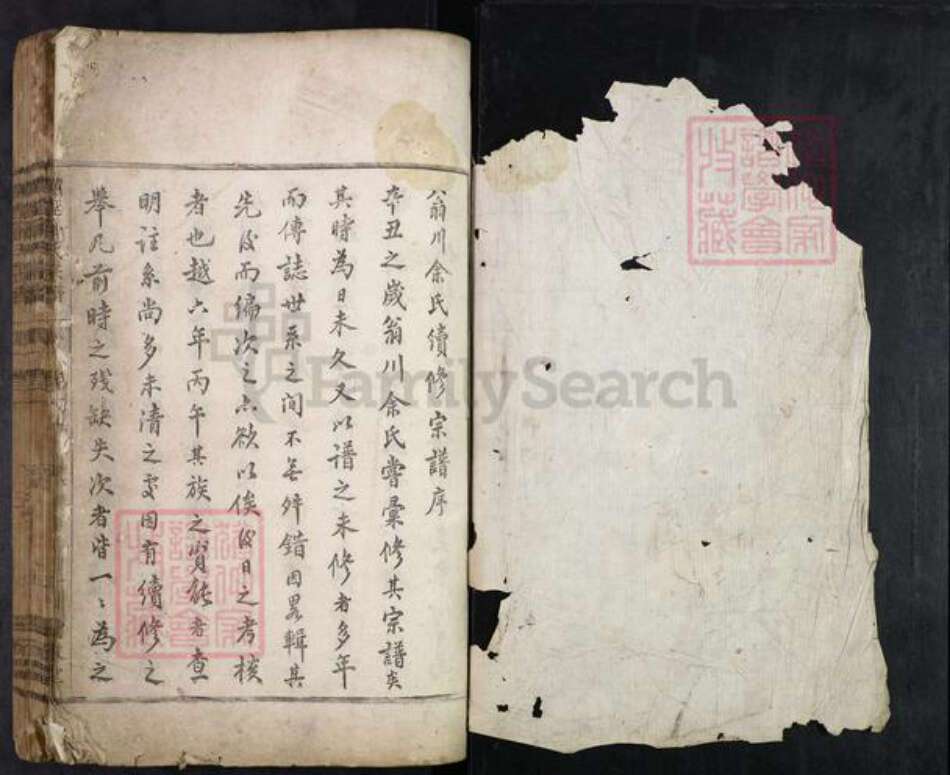 翁川余氏續修宗譜序
辛丑之歲翁川余氏嘗彙修其宗譜矣
其時為日未久又以譜之未修者多年
而傳誌世系之间不無舛錯因畧輯其
先後而编次之亦欲以俟後日之考核
者也越六年丙午其族之賢能者查
明註系尚多未清之處因有續修之
舉凡前時之残缺失次者皆一〻為之
FamilySearch
譜學會
收藏